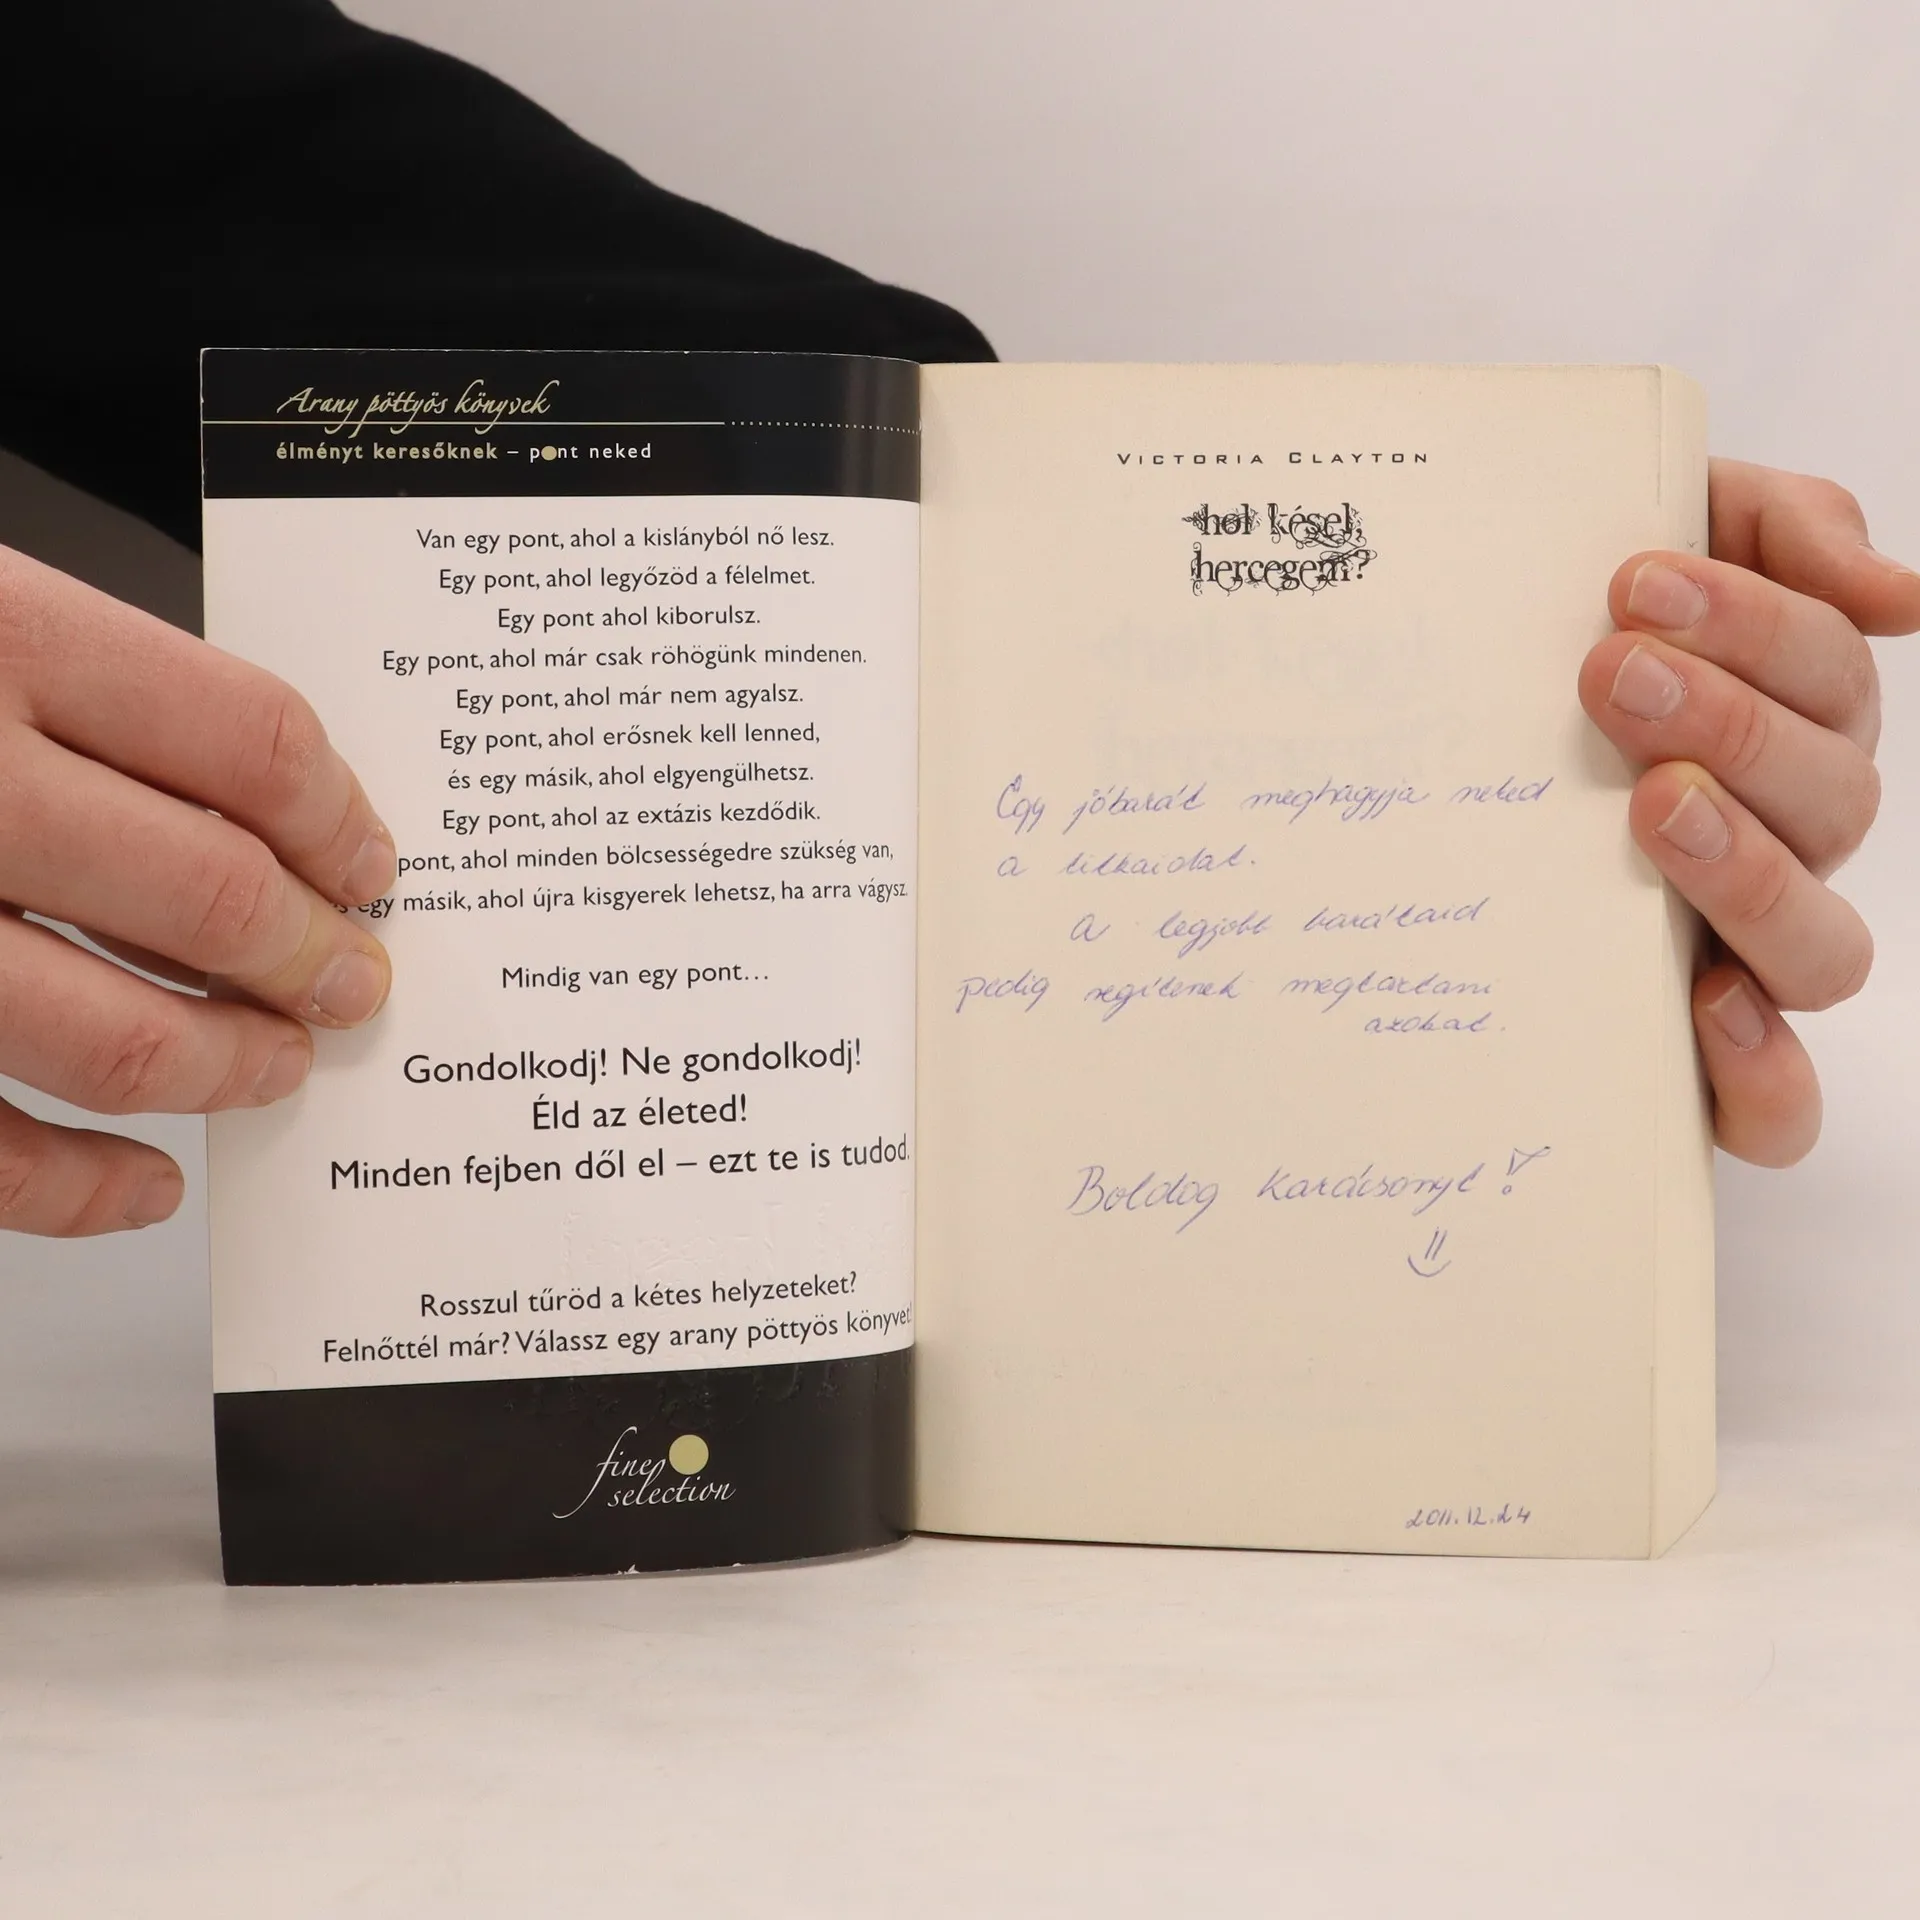 Arany pöttyös könyvek
élményt keresőknek – pont neked
Van egy pont, ahol a kislányból nő lesz.
Egy pont, ahol legyőzöd a félelmet.
Egy pont ahol kiborulsz.
Egy pont, ahol már csak röhögünk mindenen.
Egy pont, ahol már nem agyalsz.
Egy pont, ahol erősnek kell lenned,
és egy másik, ahol elgyengülhetsz.
Egy pont, ahol az extázis kezdődik.
pont, ahol minden bölcsességedre szükség van,
egy másik, ahol újra kisgyerek lehetsz, ha arra vágysz.
Mindig van egy pont...
Gondolkodj! Ne gondolkodj!
Éld az életed!
Minden fejben dől el – ezt te is tudod.
Rosszul tűröd a kétes helyzeteket?
Felnőttél már? Válassz egy arany pöttyös könyvet!
fine
selection
VICTORIA CLAYTON
hol késel,
hercegem?
Egy jóbarát meghagyja neked
a titkaidat.
A legjobb barátaid
pedig segítenek megtartani
azokat.
Boldog karácsonyt!
2011.12.24